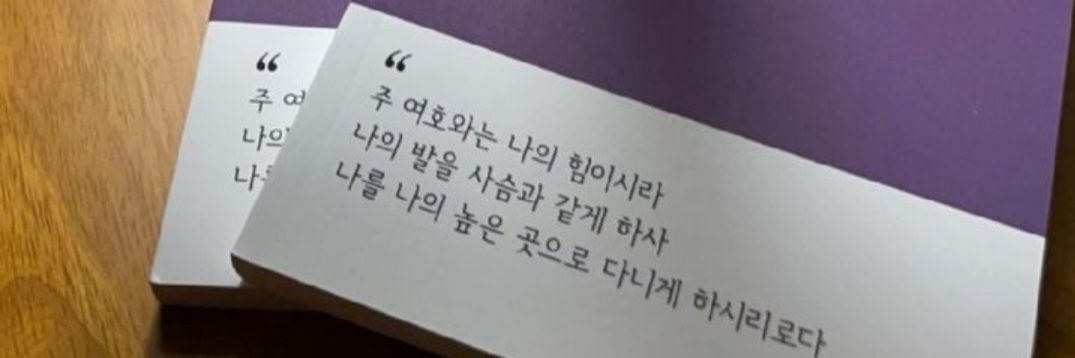 “
주 여
나의
“
주 여호와는 나의 힘이시라
나의 발을 사슴과 같게 하사
나를 나의 높은 곳으로 다니게 하시리로다